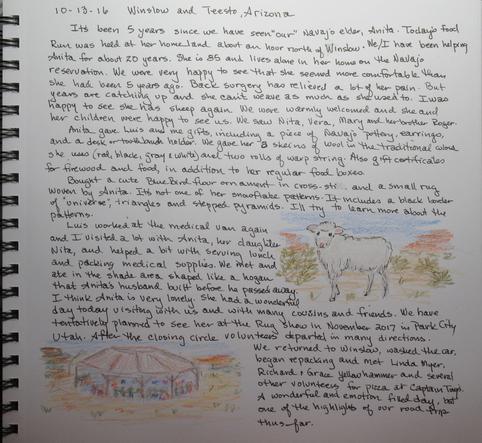 10-13-16 Winslow and Teesto, Arizona
Its been 5 years since we have seen "our" Navajo elder, Anita. Today's food
Run was held at her homeland about an hour north of Winslow. We/I have been helping
Anita for about 20 years. She is 85 and lives alone in her home on the Navajo
reservation. We were very happy to see that she seemed more comfortable than
she had been 5 years ago. Back surgery has relieved a lot of her pain. But
years are catching up and she can't weave as much as she used to. I was
happy to see she has sheep again. We were warmly welcomed and she and
her children were happy to see us. We saw Nita, Vera, Mary and her brother Roger.
Anita gave Luis and me gifts, including a piece of Navajo pottery, earrings,
and a desk or toothbrush holder. We gave her 8 skeins of wool in the traditional colors
she uses (red, black, gray & white) and two rolls of warp string. Also gift certificates
for firewood and food, in addition to her regular food boxes.
Bought a cute Blue Bird flour ornament in cross-sti and a small rug
woven by Anita. Its not one of her snowflake patterns. It includes a black border
of "universe", triangles and stepped pyramids. I'll try to learn more about the
patterns.
Luis worked at the medical van again
and I visited a bit with Anita, her daughter
Nita, and helped a bit with serving lunch
and packing medical supplies. We met and
ate in the shade area, shaped like a hogan
that Anita's husband built before he passed away.
I think Anita is very lonely. She had a wonderful
day today visiting with us and with many cousins and friends. We have
tentatively planned to see her at the Rug Show in November 2017 in Park City
Utah. After the closing circle volunteers departed in many directions.
We returned to Winslow, washed the car,
began repacking and met Linda Myer,
Richard & Grace Yellowhammer and several
other volunteers for pizza at Captain Tony's.
A wonderful and emotion filled day, but
one of the highlights of our road trip
thus far.